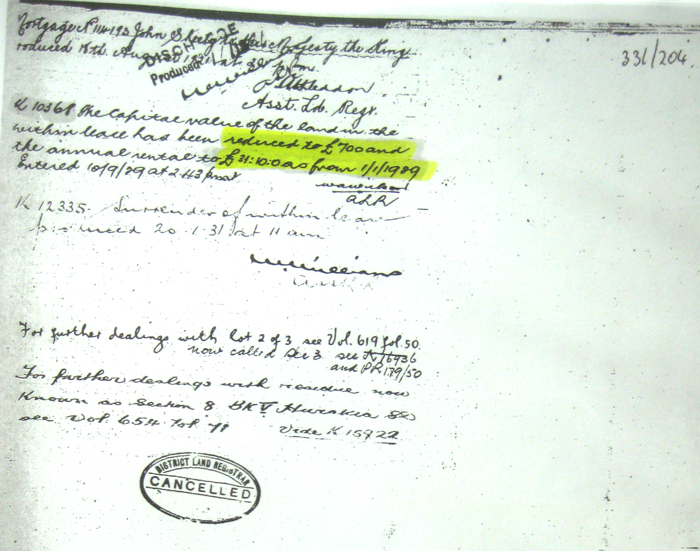 Mortgage No 114193 John S to His Majesty the King
331/204.
produced 18th. August at
DISCHARGE
Produced
Asst. Ld. Regr.
K 10368 The Capital value of the land in the
within lease has been reduced to £700 and
the annual rental to £31:10:0 as from 1/1/1929
Entered 10/9/29 at 2.43 p
ALR
K 12335. Surrender of within lease
produced 20.1.31 at 11 am
For further dealings with Lot 2 of 3 see Vol. 619 fol. 50.
now called Sec 3 see K 16936
and PR 179/50
For further dealings with residue now
known as Section 8 BK V Hurakia SD
see Vol. 654 fol 71 Vide K 15922
DISTRICT LAND REGISTRAR
CANCELLED